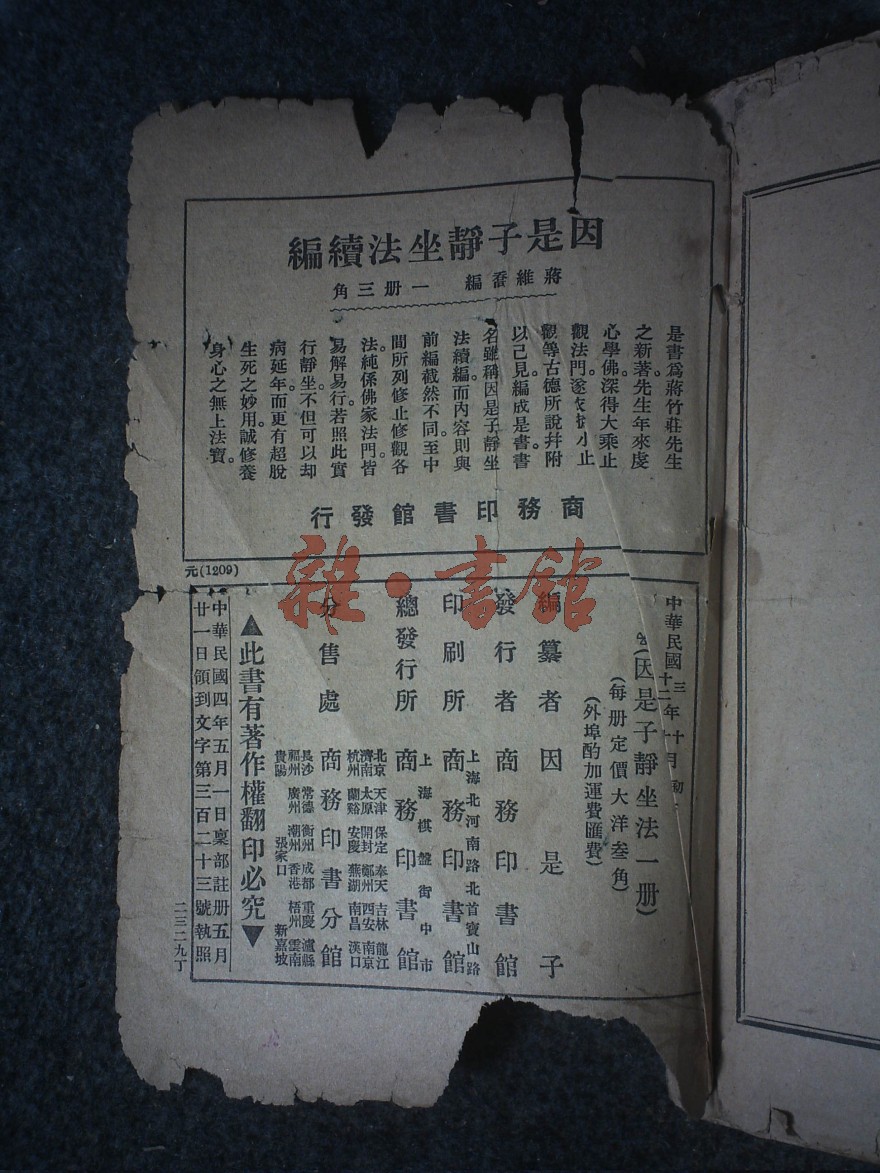 因是子靜坐法續編
蔣維喬編 一册三角
是書爲蔣竹莊先生
之新著先生年來虔
心學佛深得大乘止
觀法門遂依小止
觀等古德所說幷附
以己見編成是書書
名雖稱因是子靜坐
法續編而內容則與
前編截然不同至中
間所列修止修觀各
法純係佛家法門皆
易解易行若照此實
行靜坐不但可以却
病延年而更有超脫
生死之妙用誠修養
身心之無上法寶
商務印書館發行
元(1209)
中華民國三年十月初
十二
(因是子靜坐法一册)
(每册定價大洋叁角)
(外埠酌加運費匯費)
編纂者 因是子
發行者 商務印書館
上海北河南路北首寶山路
印刷所 商務印書館
上海棋盤街中市
總發行所 商務印書館
北京 天津 保定 奉天 吉林 龍江
濟南 太原 開封 鄭州 西安 南京
杭州 蘭谿 安慶 蕪湖 南昌 漢口
分售處 商務印書分館
長沙 常德 衡州 成都 重慶 瀘縣
福州 廣州 潮州 香港 梧州 雲南
貴陽 張家口 新嘉坡
▲此書有著作權翻印必究▼
中華民國四年五月一日稟部註册五月
廿一日領到文字第三百二十三號執照
二三二九丁
雜·書館